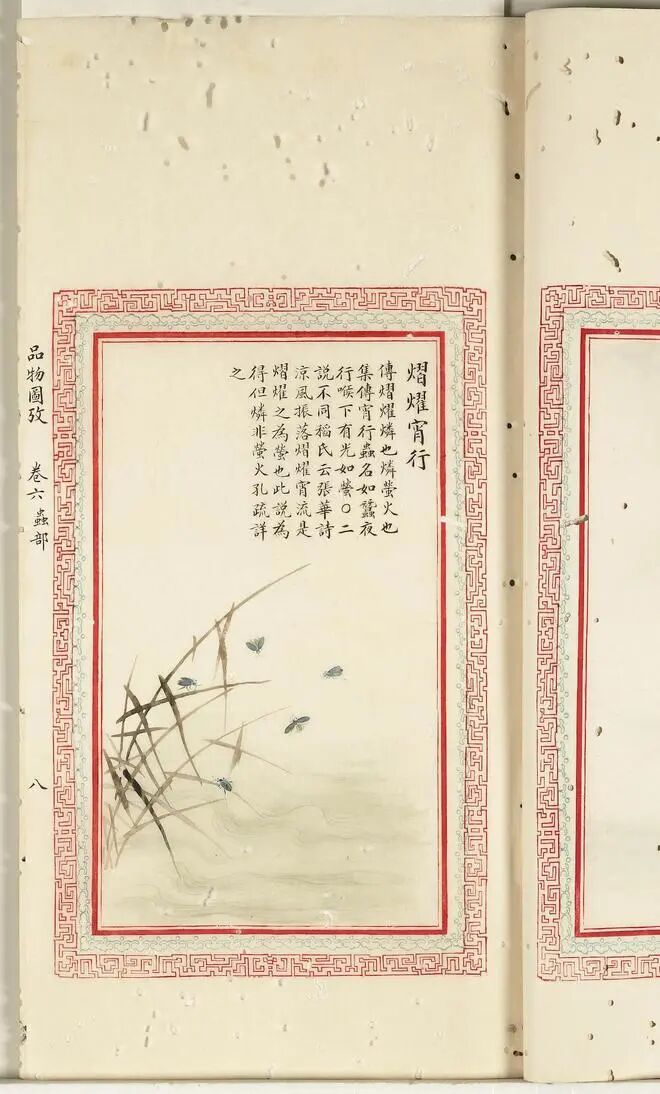 熠燿宵行
傳熠燿燐也燐螢火也
集傳宵行蟲名如蠶夜
行喉下有光如螢〇二
說不同稻氏云張華詩
涼風振落熠燿宵流是
熠燿之為螢也此說為
得但燐非螢火孔疏詳
之
品物圖攷 卷六 蟲部
八